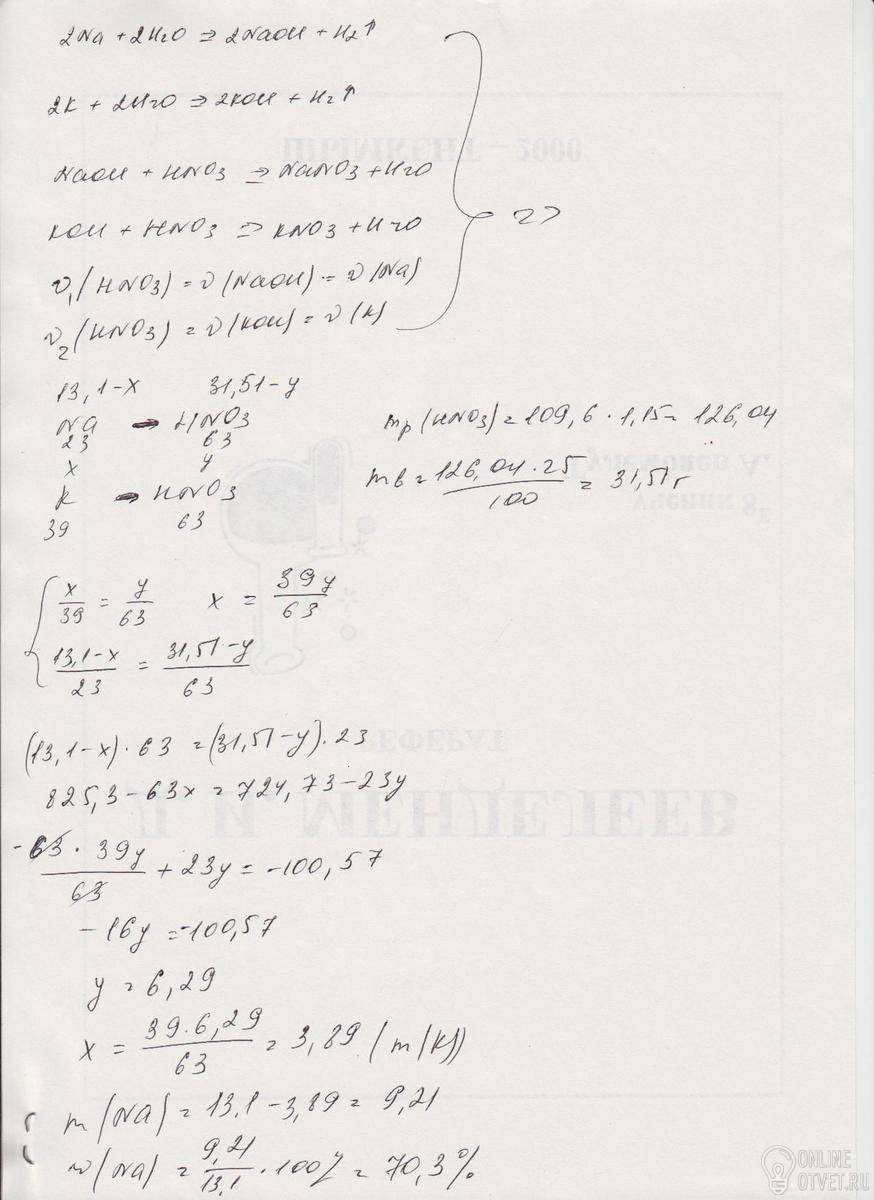 2Na + 2H2O => 2NaOH + H2↑
2K + 2H2O => 2KOH + H2↑
ШЫМКЕНТ – 2000
NaOH + HNO3 => NaNO3 + H2O
KOH + HNO3 => KNO3 + H2O
=>
ν1(HNO3) = ν(NaOH) = ν(Na)
ν2(HNO3) = ν(KOH) = ν(K)
13,1-x 31,51-y
Na → HNO3
23 63
x y
K → HNO3
39 63
mр(HNO3) = 109,6 · 1,15 = 126,04
mв = 126,04 · 25 / 100 = 31,51 г
ученик 8
x/39 = y/63 x = 39y/63
13,1-x / 23 = 31,51-y / 63
РЕФЕРАТ
(13,1-x) · 63 = (31,51-y) · 23
825,3 - 63x = 724,73 - 23y
Д. И. МЕНДЕЛЕЕВ
- 63 · 39y / 63 + 23y = -100,57
-16y = -100,57
y = 6,29
x = 39 · 6,29 / 63 = 3,89 (m(K))
m(Na) = 13,1 - 3,89 = 9,21
w(Na) = 9,21/13,1 · 100% = 70,3%
ONLINE
OTVET.RU